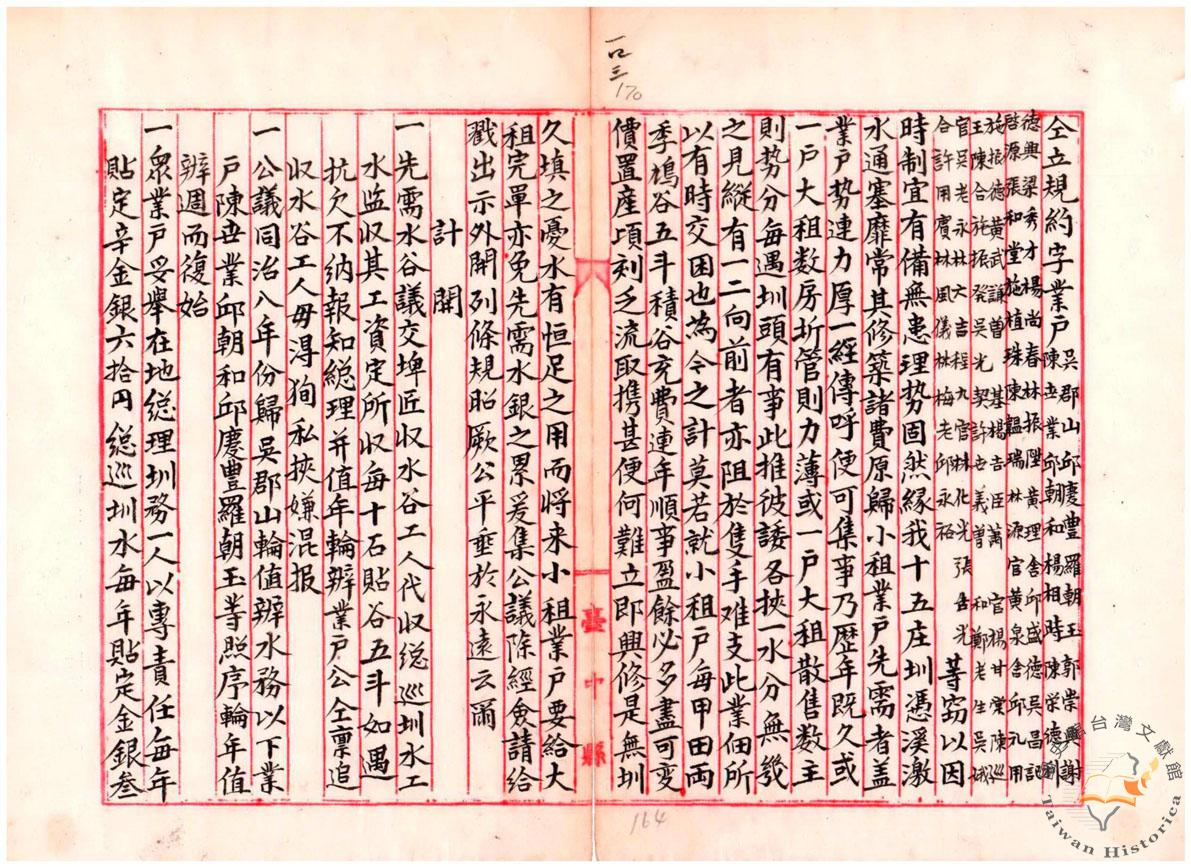 一口三
170
仝立規約字業戶陳立業邱朝和楊相時陳榮德
吳郡山邱慶豊羅朝玉郭崇興謝
德興梁秀才楊尚春林振陞黃理舍邱盛德吳昌記
啓源張和堂施植珠陳韞瑞林源官黃泉舍邱礼用
施振德黃武謙曾基楊吉臣蕭官楊甘棠陳巡
王陳合施振發吳光契許世義曾和鄭老生吳城
官吳老永林大吉程九官林化光張吉光
合許用賓林風儀林梅老邱永裕
等窃以因
時制宜有備無患理势固然緣我十五庄圳憑溪激
水通塞靡常其修築諸費原歸小租業戶先需者蓋
業戶势連力厚一經傳呼便可集事乃歷年既久或
一戶大租数房圻管則力薄或一戶大租散售数主
則势分每遇圳頭有事此推彼諉各挾一水分無幾
之見縱有一二向前者亦阻於隻手难支此業佃所
以有時交困也為今之計莫若就小租戶每甲田両
季鳩谷五斗積谷充費連年順事盈餘必多盡可变
價置産項刻乏流取携甚便何難立即興修是無圳
久填之憂水有恒足之用而将来小租業戶要給大
租完單亦免先需水銀之累爰集公議除經僉請給
戳出示外開列條規昭厥公平垂於永遠云爾
計開
一先需水谷議交埤匠収水谷工人代収総巡圳水工
水监収其工資定所収每十石貼谷五斗如遇
抗欠不納報知総理并值年輪辦業戶公仝禀追
収水谷工人毋淂狥私挾嫌混报
一公議同治八年份歸吳郡山輪值辦水務以下業
戶陳世業邱朝和邱慶豊羅朝玉等照序輪年值
辦週而復始
一衆業戶妥舉在地総理圳務一人以專責任每年
貼定辛金銀六拾円総巡圳水每年貼定金銀叁
臺中縣
164
台灣文獻館
Taiwan Historica